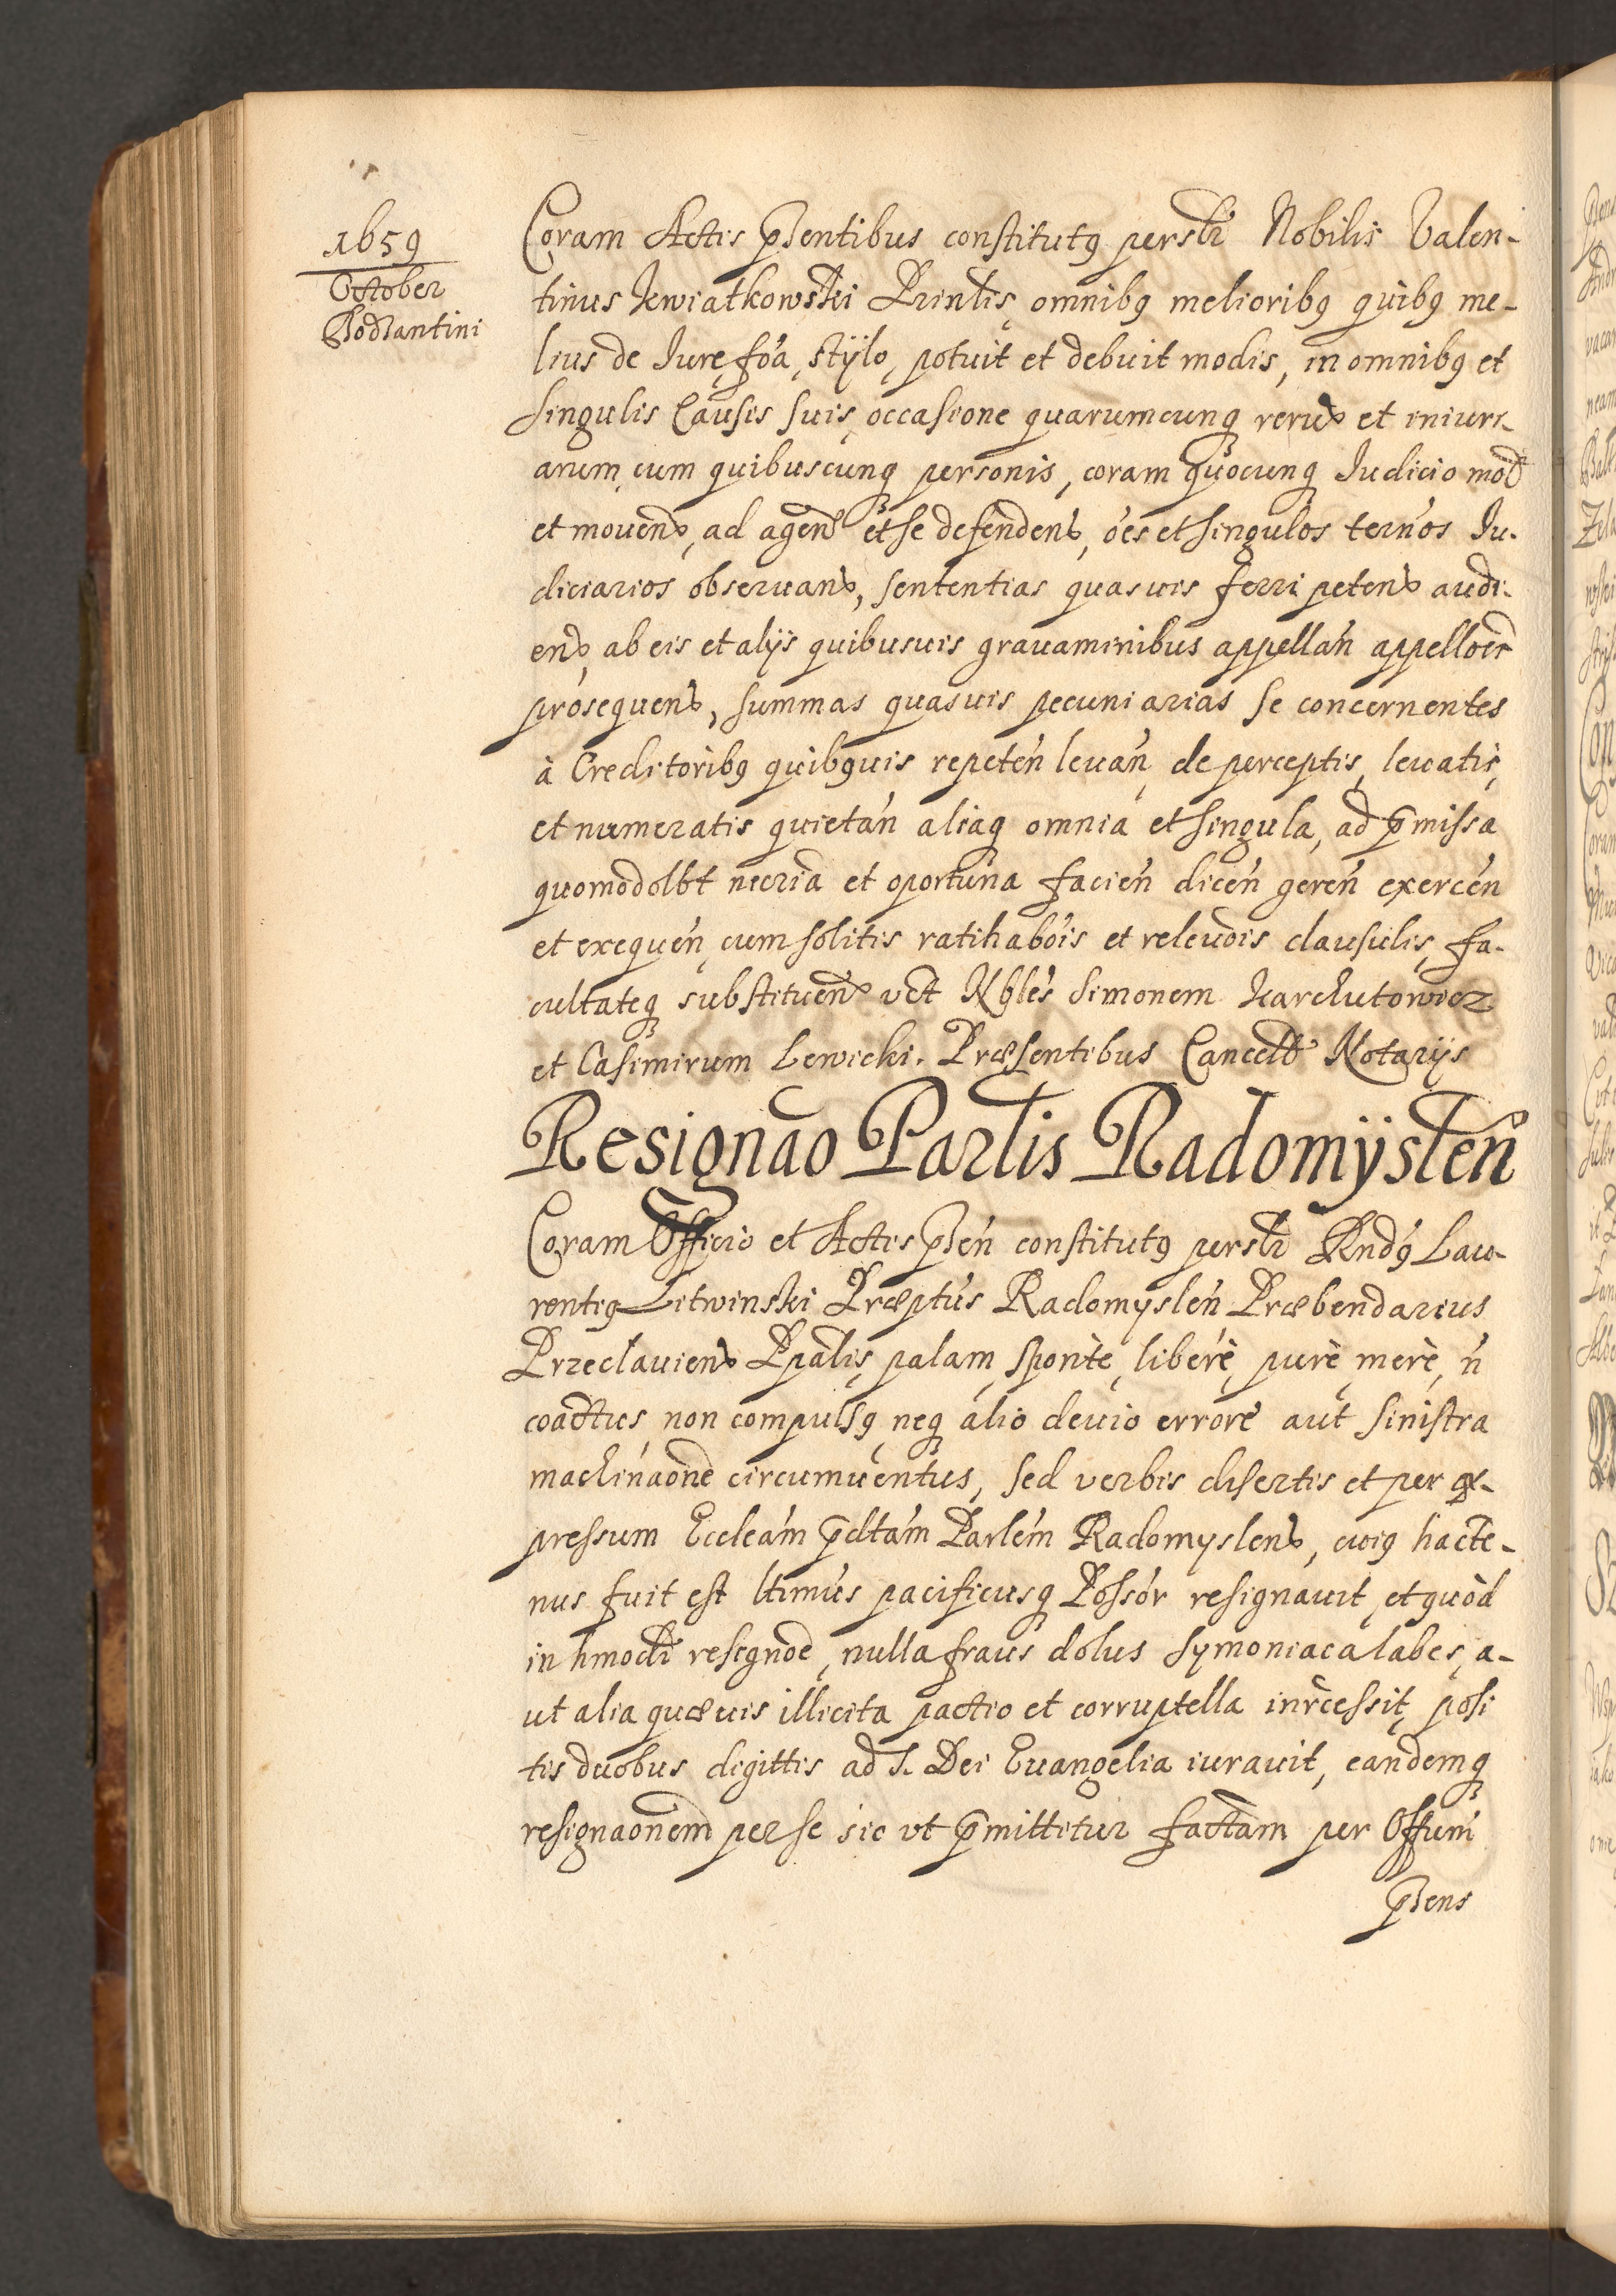 1659
October
Bodzantini
Coram Actis pñtibus constitutꝯ persłr Nobilis Valen-
tinus Kwiatkowski Prinłis, omnibꝯ melioribꝯ quibꝯ me-
lius de Iure, foã, stÿlo, potuit et debuit modis, in omnibꝯ et
singulis Causis suis, occasione quarumcunqꝫ rerũ et iniuri-
arum, cum quibuscunqꝫ personis, coram quocunqꝫ Iudicio mot̃
et mouend̃, ad agend̃ et se defendend̃, oẽs et singulos termõs Iu-
diciarios obseruand̃, sententias quasuis ferri petend̃ audi-
end̃, ab eis et alijs quibusuis grauaminibus appellañ appellõer
prosequend̃, summas quasuis pecuniarias se concernentes
à Creditoribꝯ quibꝯuis repeteñ leuañ, de perceptis, leuatis,
et numeratis quietañ aliaqꝫ omnia et singula, ad p̃missa
quomodolbt necria et oportuna facieñ diceñ gereñ exerceñ
et exequeñ, cum solitis ratihabõis et releuõis clausulis, fa-
cultateqꝫ substituend̃ vct Nbles Simonem Karchutowicz
et Casimirum Lewicki. Præsentibus Cancell̃ Notarijs
Resignão Parlis Radomÿsleñ
Coram Officio et Actis pñ constitutꝯ persłr Rndꝯ Lau-
rentiꝯ Litwinski Præptus Radomysleñ Præbendarius
Przeclauiens Ppalis, palam, sponte, libere, pure, mere, ñ
coactus, non compulsꝯ, neqꝫ alio deuio errore aut sinistra
machinaone circumuentus, sed verbis disertis et per ex-
pressum Eccleam p̃dtam Parlem Radomyslens, cuiꝯ hacte-
nus fuit est ltimus pacificusqꝫ Possor resignauit, et quòd
in hmodi resignoe, nulla fraus dolus symoniaca labes, a-
ut alia quæuis illicita pactio et corruptella inrcessit, posi
tis duobus digittis ad S. Dei Euangelia iurauit, eandemqꝫ
resignaonem per se sic vt p̃mittitur factam per Offum
pñs